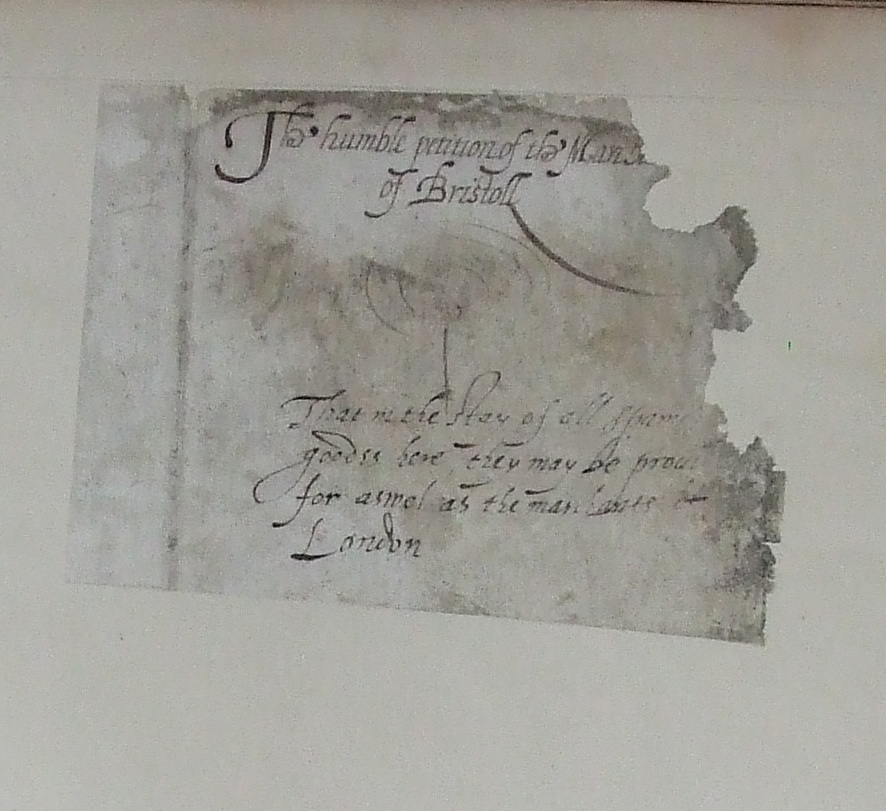 The humble petition of the Marc
of Bristoll
That in the stay of all Span
goodes here, they may be prou
for aswel as the marchants
London